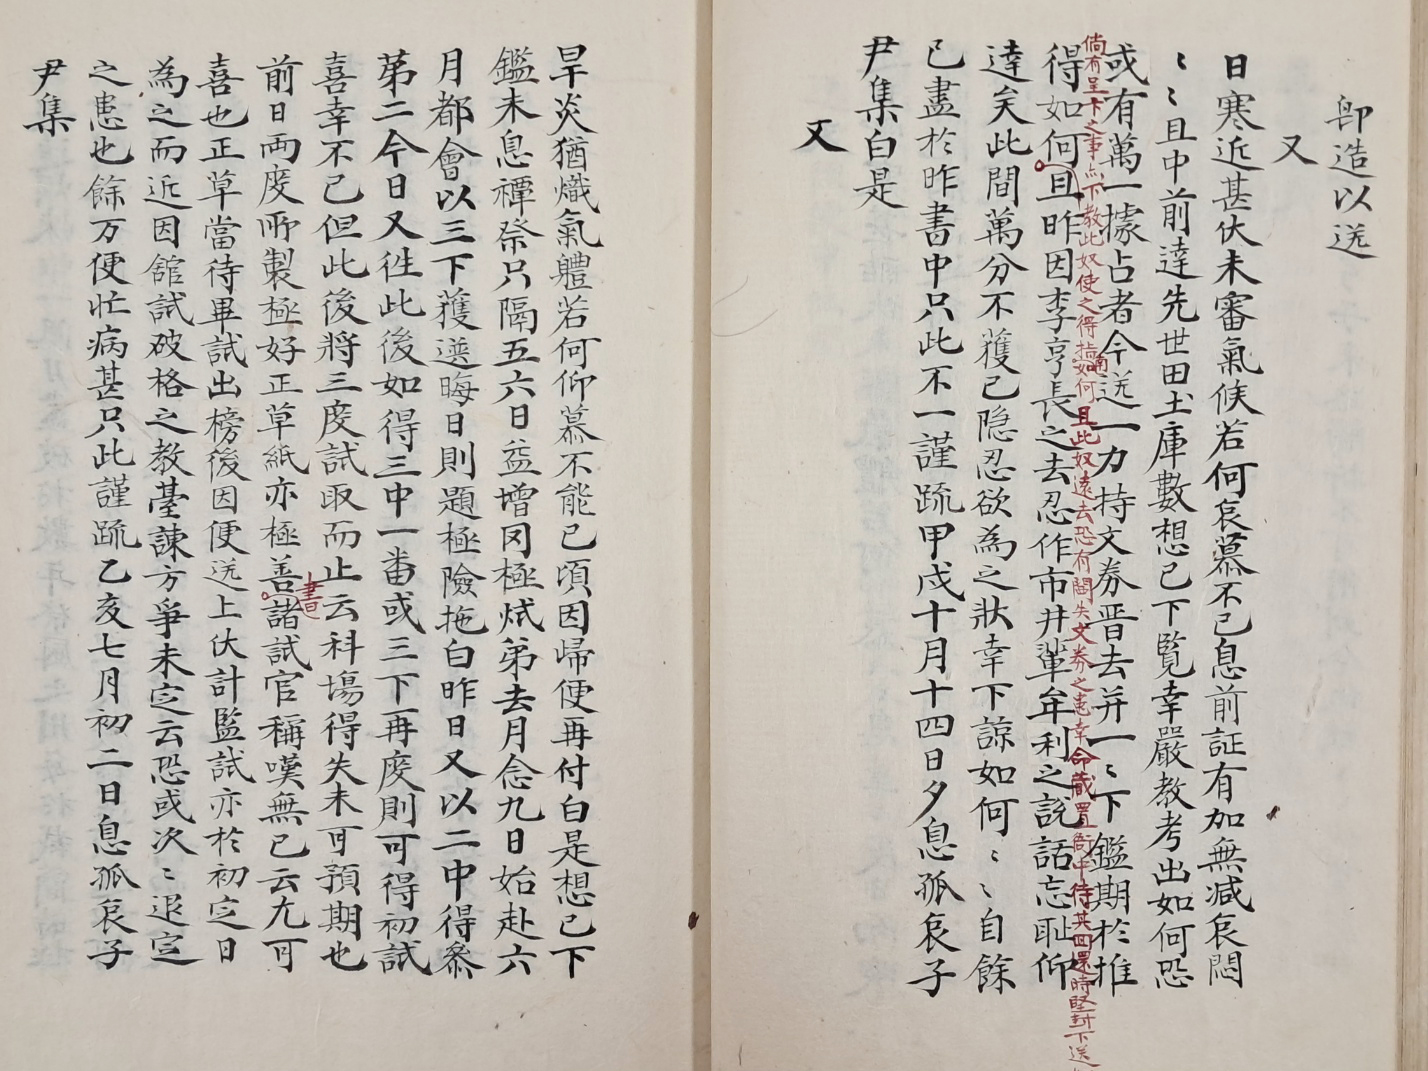 即造以送
又
日寒近甚伏未審氣候若何哀慕不已息前証有加無減哀悶
〻〻且中前達先世田土庫數想已下覧幸嚴教考出如何恐
或有萬一據占者今送一力持文券晋去并一〻下鑑期於推
倘有呈卞之事点下教此奴使之得指南如何且此奴遠去恐有閪失文券之患幸命藏置衙中待其回還時堅封下送
得如何且昨因李亨長之去忍作市井輩牟利之說話忘耻仰
達矣此間萬分不獲已隐忍欲為之狀幸下諒如何〻〻自餘
已盡於昨書中只此不一謹疏甲戌十月十四日夕息孤哀子
尹集白是
又
旱炎猶熾氣體若何仰慕不能已頃因歸便再付白是想已下
鑑未息禫祭只隔五六日益增罔極烒弟去月念九日始赴六
月都會以三下獲選晦日則題極險拖白昨日又以二中得叅
苐二今日又徃此後如得三中一番或三下再度則可得初試
喜幸不已但此後將三度試取而止云科塲得失未可預期也
前日両度所製極好正草紙亦極善諸試官稱嘆無已云尤可
書
喜也正草當待畢試出榜後因便送上伏計監試亦於初定日
為之而近因舘試破格之教臺諫方爭未定云恐或次〻退定
之患也餘万便忙病甚只此謹疏乙亥七月初二日息孤哀子
尹集